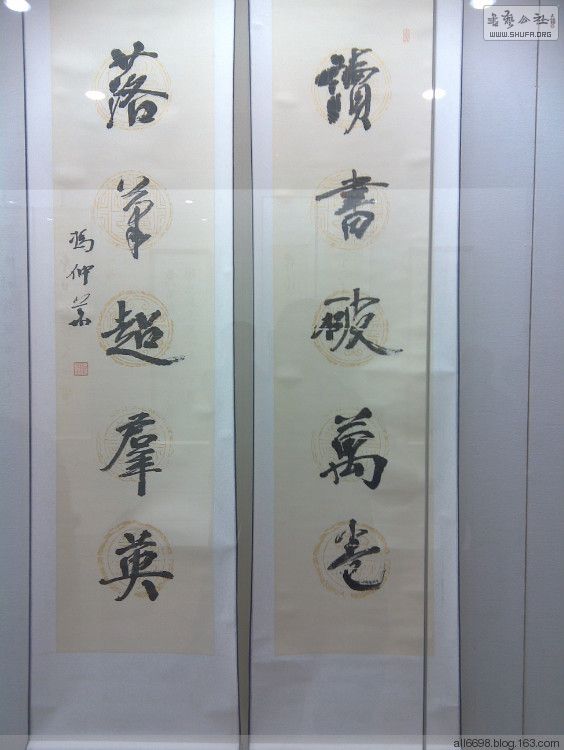 讀書破萬卷
落筆超羣英
馮仲

书艺公社
WWW.SHUFA.ORG
ajl6698.blog.163.com